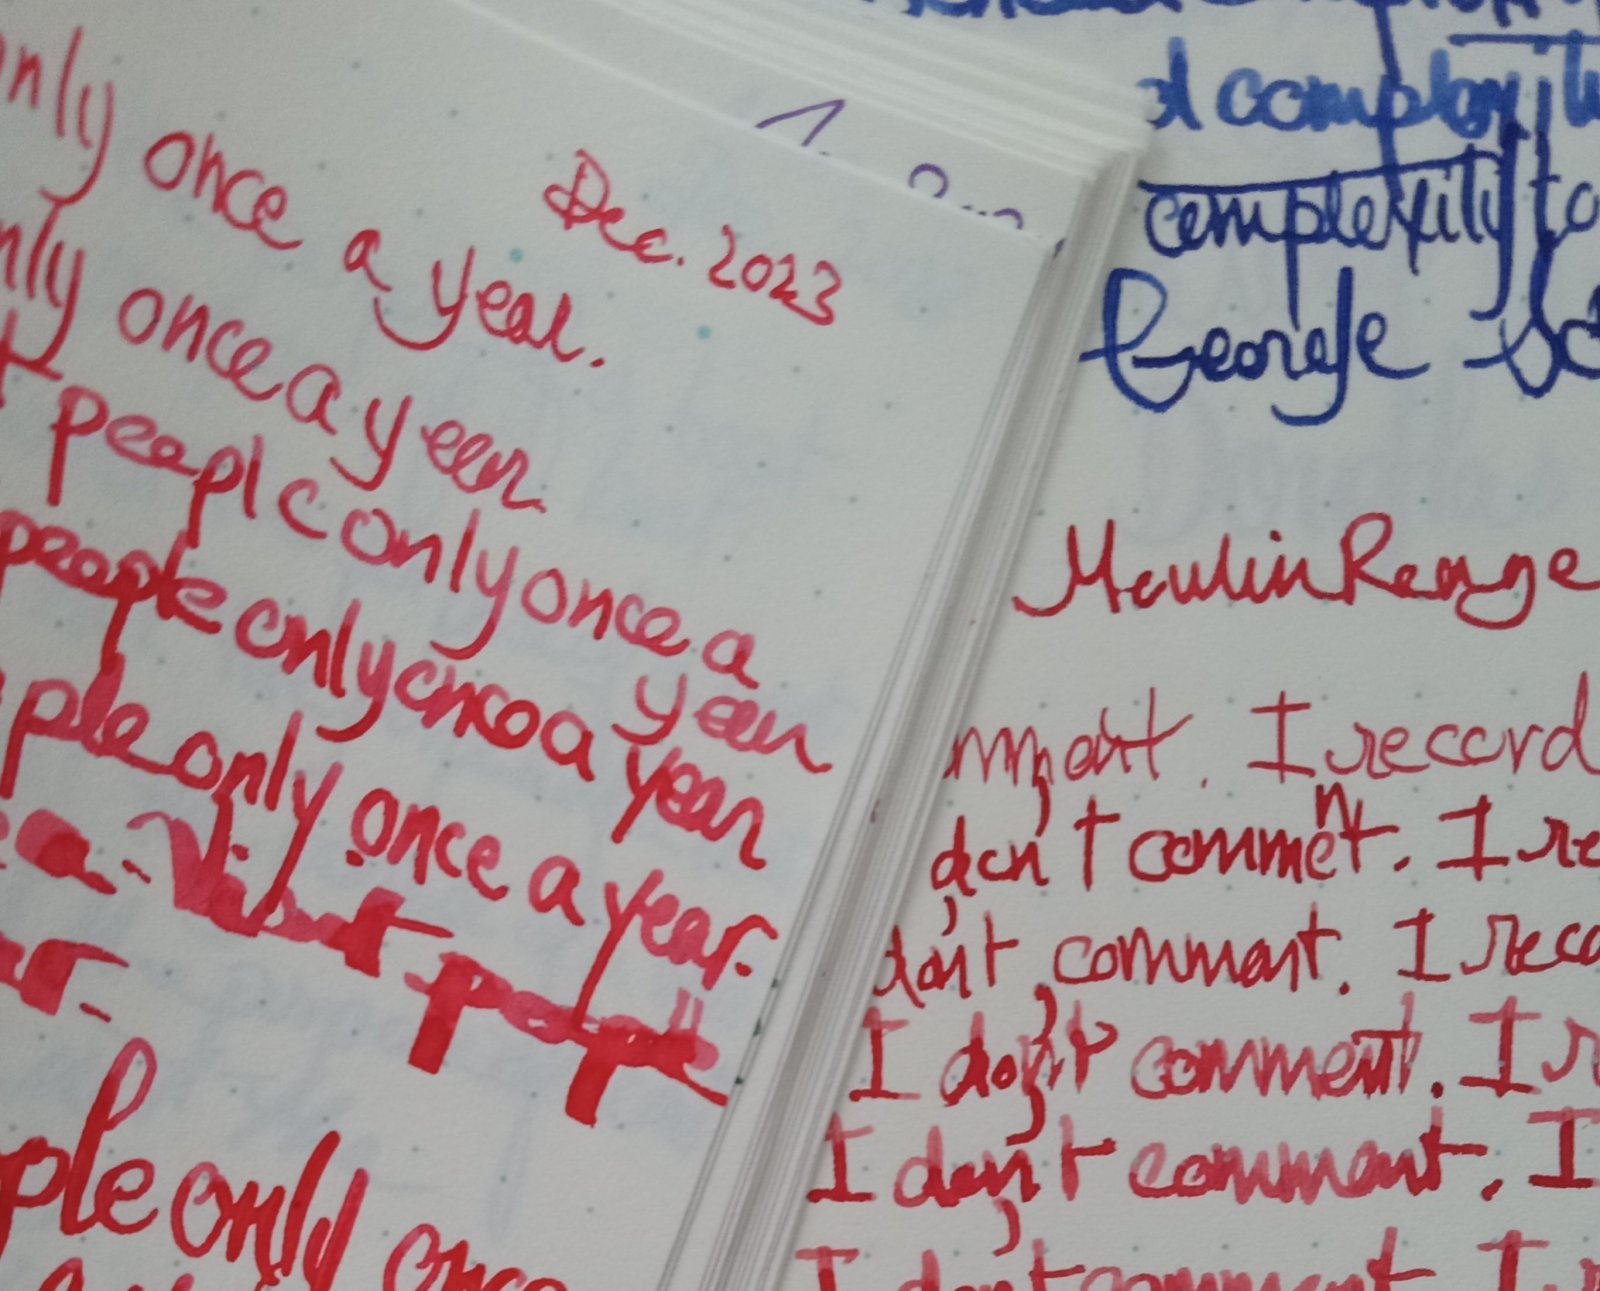 only once a year.
Dec. 2023
only once a year
t peopl only once a
year
people only once a year
ple only once a year.
a. Visit people
ple only once
d complexity
complexity to
George
Moulin Rouge
mment. I record
don't comment. I re
don't comment. I reco
I don't comment. I r
I don't comment. I
I don't comment. I